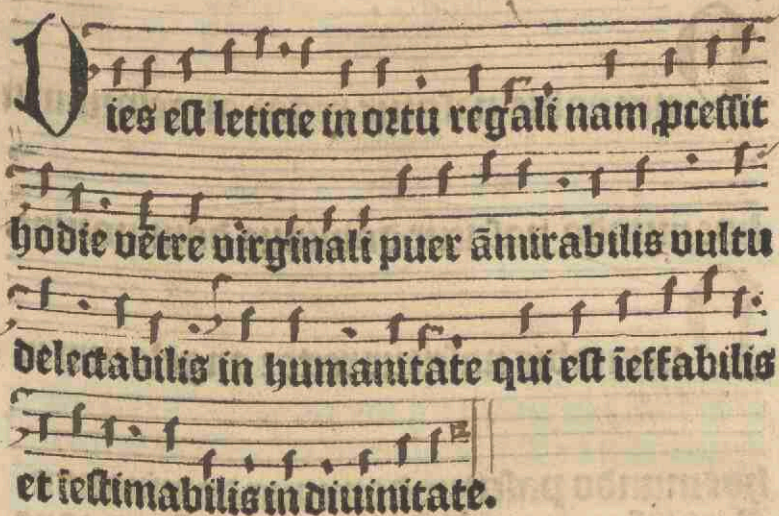 Dies est leticie in ortu regali nam ꝓcessit
hodie vētre virginali puer āmirabilis vultu
delectabilis in humanitate qui est īeffabilis
et īestimabilis in diuinitate.